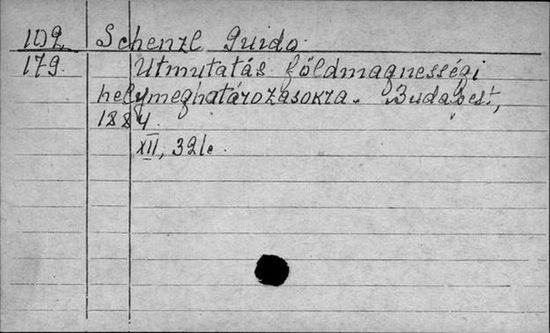 102. Schenzl Guido.
179. Utmutatás földmagnességi
helymeghatározásokra. Budapest,
1884.
XII, 321.